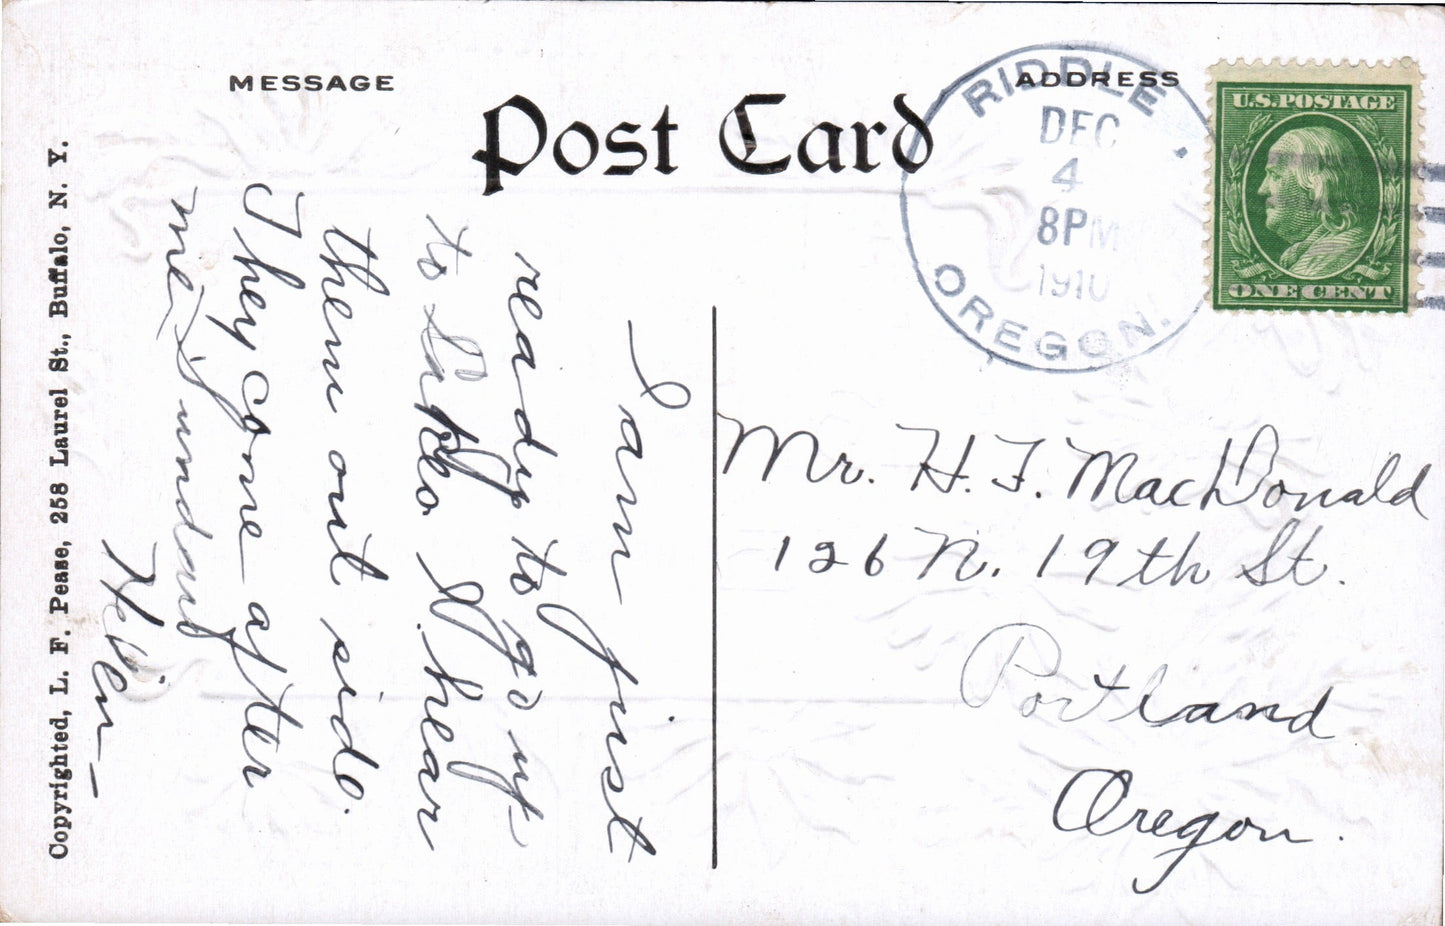 MESSAGE
Post Card
ADDRESS
RIDDLE
DEC
4
8PM
1910
OREGON.
U.S. POSTAGE
ONE CENT
I am just
ready to go up
to N. hear
them out sido.
They come after
me Sunday
Copyrighted, L. F. Pease, 258 Laurel St., Buffalo, N. Y.
Mr. H. F. MacDonald
126 N. 19th St.
Portland
Oregon.